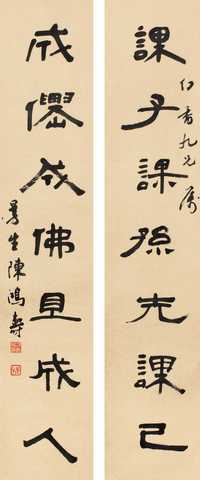 課子課孫先課己
仁香九兄屬
成僊成佛且成人
曼生陳鴻壽